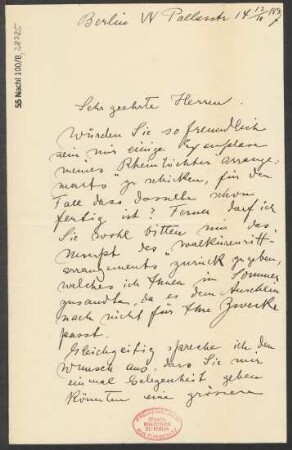 55 Nachl 100/B,
Berlin W Pallasstr 14
Sehr geehrte Herren.
Würden Sie so freundlich
sein mir einige Exemplare
meines "Rheintöchter arrange-
ments" zu schicken, für den
Fall dass dasselbe schon
fertig ist? Ferner darf ich
Sie wohl bitten mir das
Manuscpt des "Walkürenritt-
arrangements zurück zu geben,
welches ich Ihnen im Sommer
zusandte, da es dem Anschein
nach nicht für Ihre Zwecke
passt.
Gleichzeitig spreche ich den
Wunsch aus, dass Sie mir
einmal Gelegenheit geben
könnten eine grössere